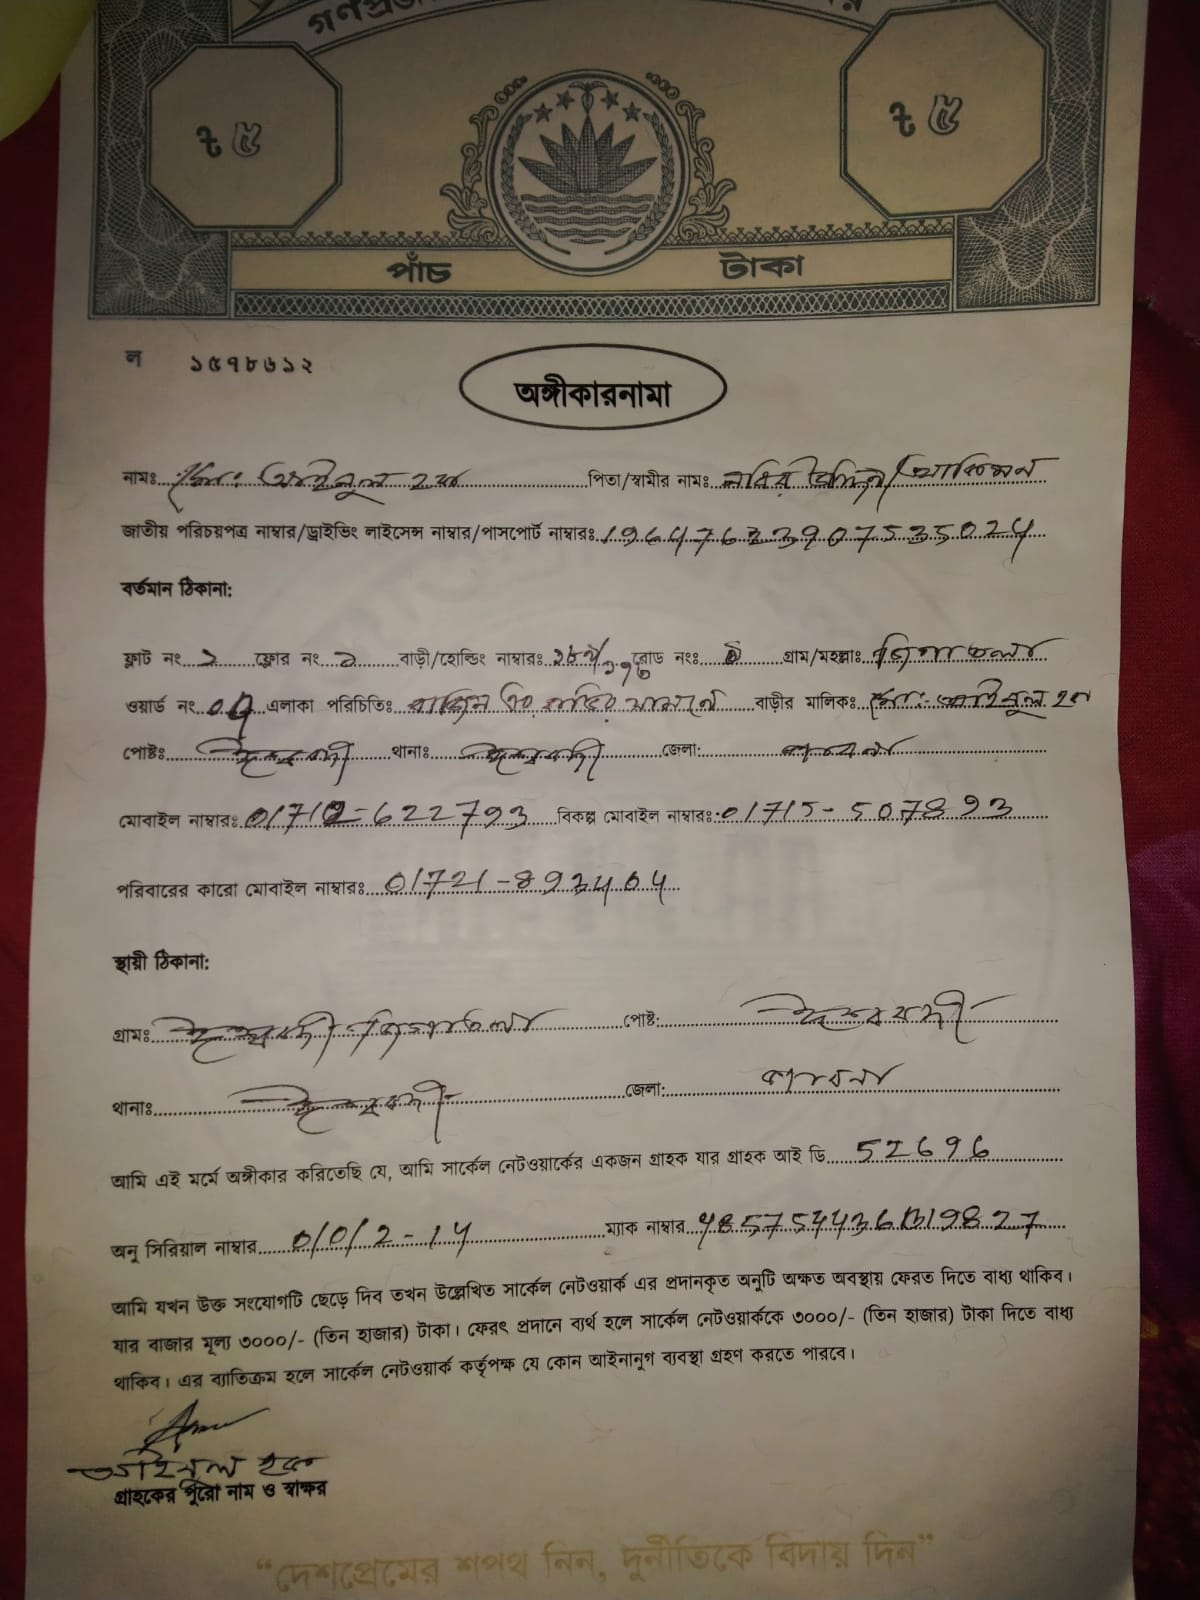 ৳ ৫ ৳ ৫
পাঁচ টাকা
ল ১৫৭৮৬১২
অঙ্গীকারনামা
নামঃ মোঃ আইনুল হক পিতা/স্বামীর নামঃ
জাতীয় পরিচয়পত্র নাম্বার/ড্রাইভিং লাইসেন্স নাম্বার/পাসপোর্ট নাম্বারঃ
বর্তমান ঠিকানা:
ফ্লাট নং ১ ফ্লোর নং ১ বাড়ী/হোল্ডিং নাম্বারঃ রোড নংঃ গ্রাম/মহল্লাঃ
ওয়ার্ড নং এলাকা পরিচিতিঃ বাড়ীর মালিকঃ মোঃ আইনুল হক
পোষ্টঃ ঈশ্বরদী থানাঃ ঈশ্বরদী জেলা: পাবনা
মোবাইল নাম্বারঃ বিকল্প মোবাইল নাম্বারঃ 01715-507893
পরিবারের কারো মোবাইল নাম্বারঃ
স্থায়ী ঠিকানা:
গ্রামঃ ঈশ্বরদী পোষ্ট: ঈশ্বরদী
থানাঃ ঈশ্বরদী জেলা: পাবনা
আমি এই মর্মে অঙ্গীকার করিতেছি যে, আমি সার্কেল নেটওয়ার্কের একজন গ্রাহক যার গ্রাহক আই ডি 52696
অনু সিরিয়াল নাম্বার 0/0/2-14 ম্যাক নাম্বার
আমি যখন উক্ত সংযোগটি ছেড়ে দিব তখন উল্লেখিত সার্কেল নেটওয়ার্ক এর প্রদানকৃত অনুটি অক্ষত অবস্থায় ফেরত দিতে বাধ্য থাকিব।
যার বাজার মূল্য ৩০০০/- (তিন হাজার) টাকা। ফেরৎ প্রদানে ব্যর্থ হলে সার্কেল নেটওয়ার্ককে ৩০০০/- (তিন হাজার) টাকা দিতে বাধ্য
থাকিব। এর ব্যাতিক্রম হলে সার্কেল নেটওয়ার্ক কর্তৃপক্ষ যে কোন আইনানুগ ব্যবস্থা গ্রহণ করতে পারবে।
আইনুল হক
গ্রাহকের পুরো নাম ও স্বাক্ষর
“দেশপ্রেমের শপথ নিন, দুর্নীতিকে বিদায় দিন”